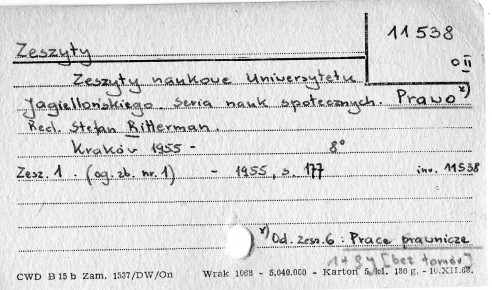 11538
Zeszyty
o II
Zeszyty naukowe Uniwersytetu
Jagiellońskiego. Seria nauk społecznych. Prawo x)
Red. Stefan Ritterman.
Kraków 1955 - 8°
Zesz. 1. (og. zb. nr. 1) - 1955, s. 177 inw. 11538
x) Od. zesz. 6: Prace prawnicze
1 + 84 [bez tomów]
CWD B 15 b Zam. 1537/DW/On Wrak 1063 - 5.040.000 - Karton 5, kl. 180 g. - 10.XII.63.